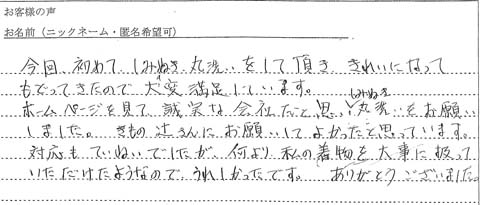 お客様の声
お名前（ニックネーム・匿名希望可）
今回、初めて、しみぬき、丸洗いをして頂き、きれいになって
もどってきたので大変満足しています。
ホームページを見て、誠実な会社だと思い、しみぬき丸洗いをお願い
しました。きもの辻さんにお願いしてよかったと思っています。
対応もていねいでしたが、何より私の着物を大事に扱って
いただけたようなので、うれしかったです。ありがとうございました。